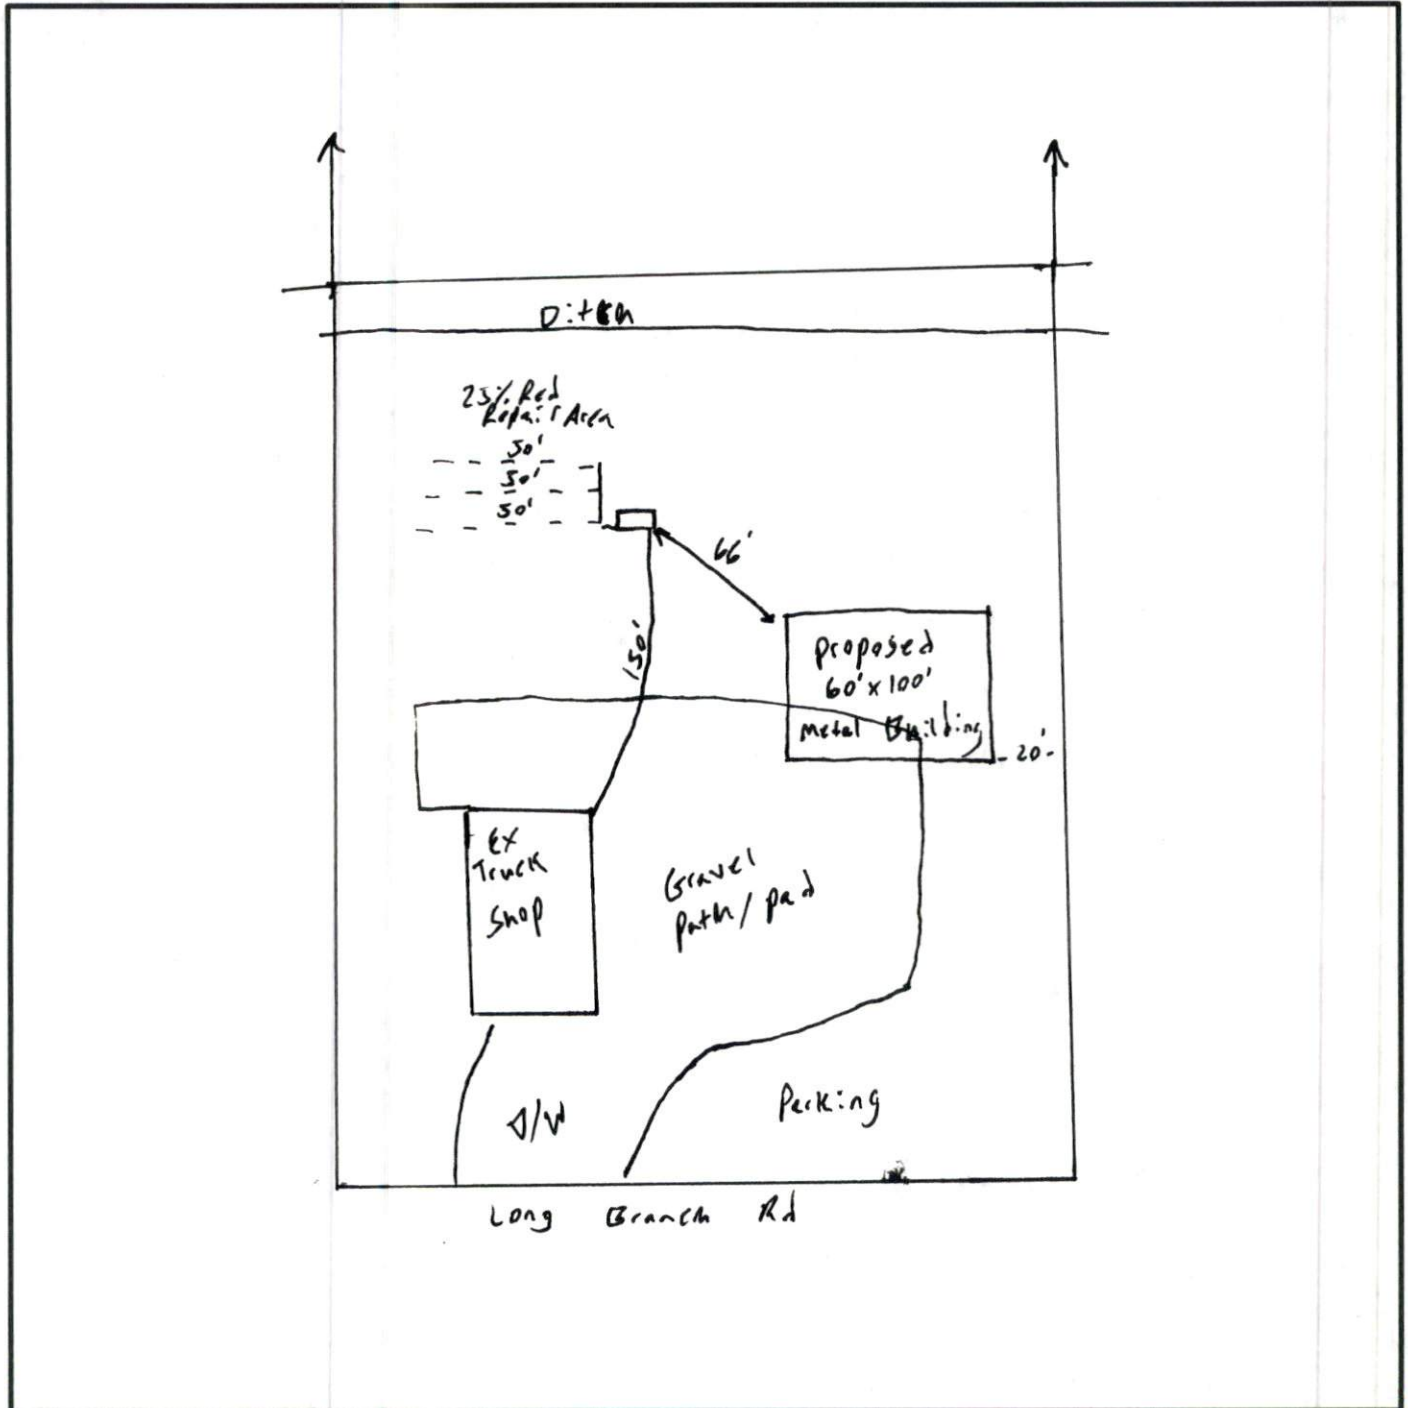 Ditch
25% Red
Repair Area
50'
50'
50'
66'
150'
Proposed
60' x 100'
Metal Building
- 20' -
Ex
Truck
Shop
Gravel
Path / pad
D/W
Parking
Long Branch Rd